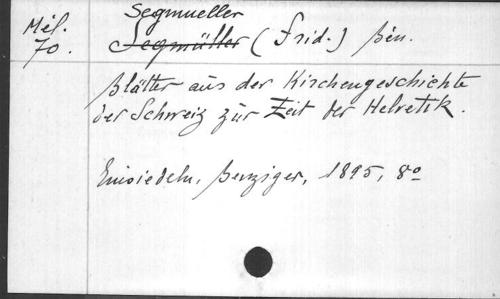 Mél.
70.
Segmueller
Segmüller (Frid.) Bén.
Blätter aus der Kirchengeschichte
der Schweiz zur Zeit der Helvetik.
Einsiedeln, Benziger, 1895, 8º